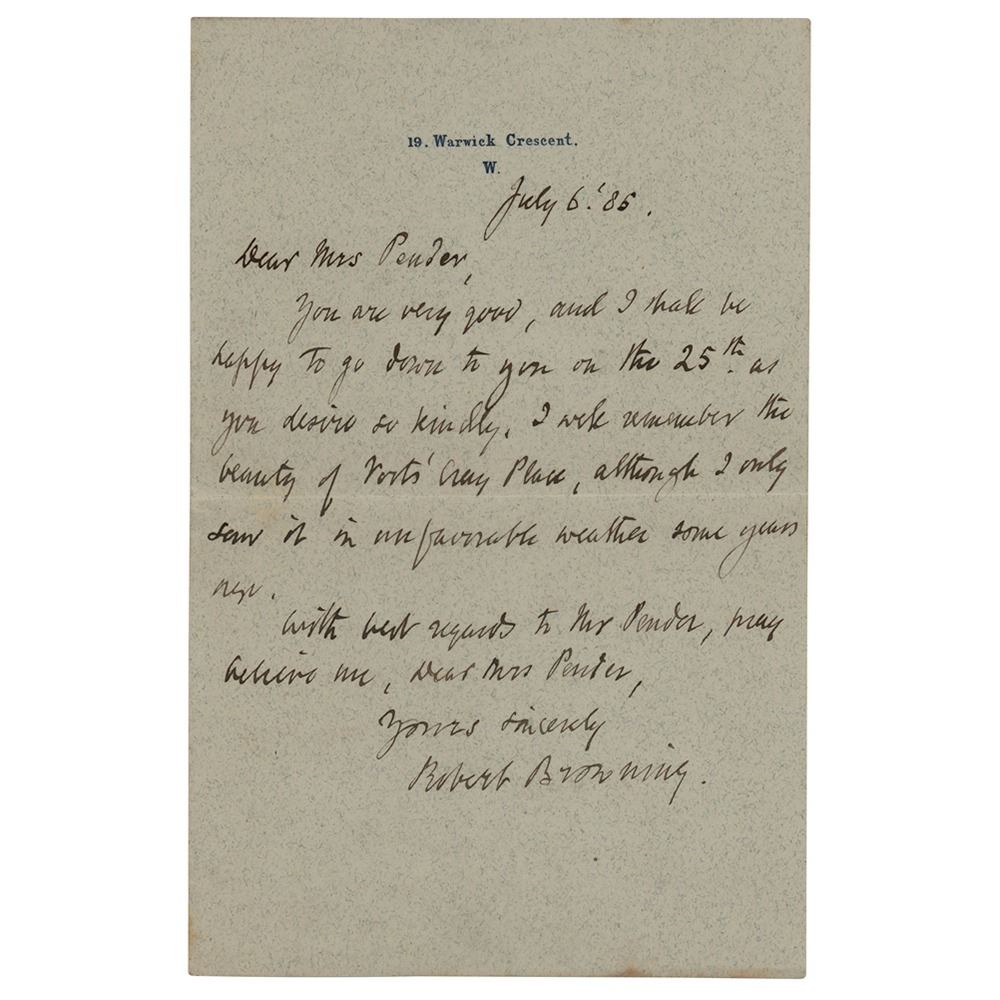 19. Warwick Crescent.
W.
July 6. '85.
Dear Mrs Pender,
You are very good, and I shall be
happy to go down to you on the 25th. as
you desire so kindly. I well remember the
beauty of Foots' Cray Place, although I only
saw it in unfavorable weather some years
ago.
With best regards to Mr Pender, pray
believe me, Dear Mrs Pender,
Yours sincerely
Robert Browning.